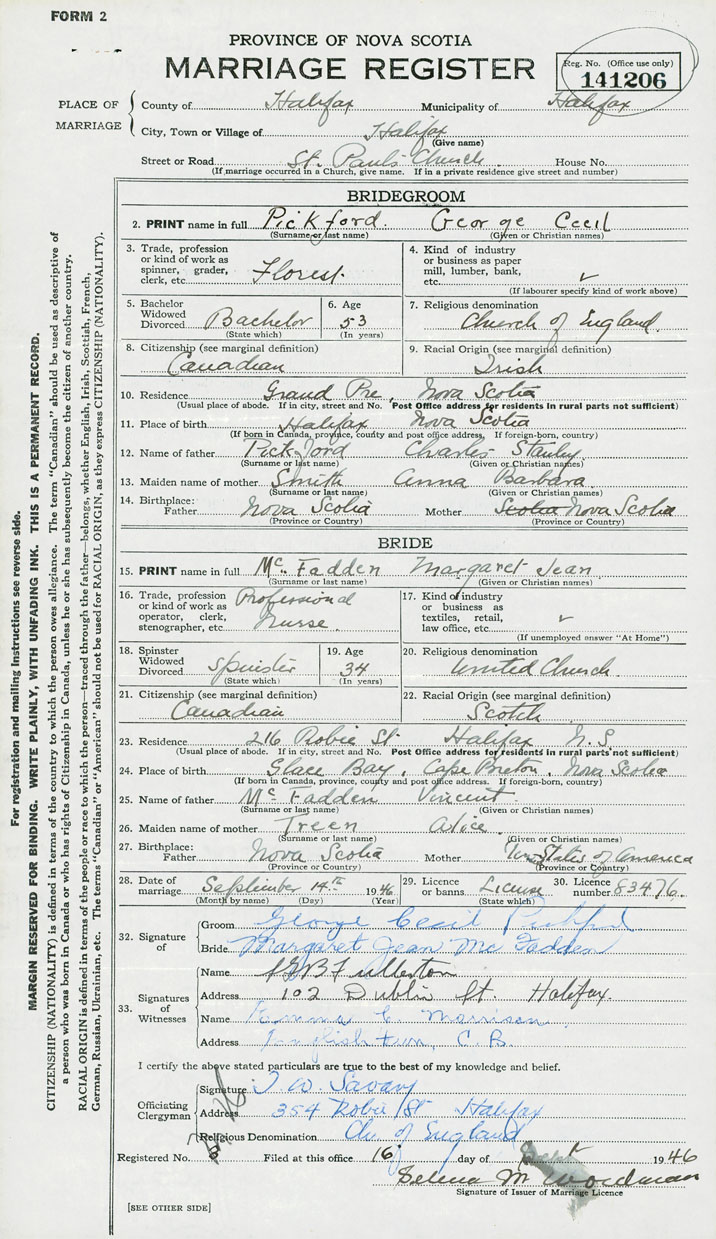 FORM 2
PROVINCE OF NOVA SCOTIA
MARRIAGE REGISTER
Reg. No. (Office use only)
141206
PLACE OF MARRIAGE
County of Halifax Municipality of Halifax
City, Town or Village of Halifax
(Give name)
Street or Road St. Pauls Church House No.
(If marriage occurred in a Church, give name. If in a private residence give street and number)
BRIDEGROOM
2. PRINT name in full Pickford. George Cecil
(Surname or last name) (Given or Christian names)
3. Trade, profession or kind of work as spinner, grader, clerk, etc. Florest.
4. Kind of industry or business as paper mill, lumber, bank, etc. ✓
(If labourer specify kind of work above)
5. Bachelor Widowed Divorced Bachelor
(State which)
6. Age 53
(In years)
7. Religious denomination
Church of England.
8. Citizenship (see marginal definition)
Canadian
9. Racial Origin (see marginal definition)
Irish
10. Residence Grand Pre, Nova Scotia
(Usual place of abode. If in city, street and No. Post Office address for residents in rural parts not sufficient)
11. Place of birth Halifax Nova Scotia
(If born in Canada, province, county and post office address. If foreign-born, country)
12. Name of father Pickford Charles Stanley
(Surname or last name) (Given or Christian names)
13. Maiden name of mother Smith Anna Barbara
(Surname or last name) (Given or Christian names)
14. Birthplace: Father Nova Scotia Mother Scotia Nova Scotia
(Province or Country) (Province or Country)
BRIDE
15. PRINT name in full Mc. Fadden Margaret Jean
(Surname or last name) (Given or Christian names)
16. Trade, profession or kind of work as operator, clerk, stenographer, etc. Professional Nurse
17. Kind of industry or business as textiles, retail, law office, etc. ✓
(If unemployed answer "At Home")
18. Spinster Widowed Divorced Spinster
(State which)
19. Age 34
(In years)
20. Religious denomination
United Church.
21. Citizenship (see marginal definition)
Canadian
22. Racial Origin (see marginal definition)
Scotch
23. Residence 216 Robie St Halifax N.S
(Usual place of abode. If in city, street and No. Post Office address for residents in rural parts not sufficient)
24. Place of birth Glace Bay, Cape Breton, Nova Scotia
(If born in Canada, province, county and post office address. If foreign-born, country)
25. Name of father Mc Fadden Vincent
(Surname or last name) (Given or Christian names)
26. Maiden name of mother Treen Alice
(Surname or last name) (Given or Christian names)
27. Birthplace: Father Nova Scotia Mother States of America
(Province or Country) (Province or Country)
28. Date of marriage September 14th 1946
(Month by name) (Day) (Year)
29. Licence or banns License
(State which)
30. Licence number 83476.
32. Signature of
Groom George Cecil Pickford
Bride Margaret Jean Mc Fadden
33. Signatures of Witnesses
Name Fullerton
Address 102 Dublin St. Halifax.
Name Emma C Morrison
Address Englishtown, C.B.
I certify the above stated particulars are true to the best of my knowledge and belief.
Officiating Clergyman
Signature T. W. Savary
Address 354 Robie St Halifax
Religious Denomination Ch. of England
Registered No. Filed at this office 16 day of Sept 1946
Selena M Woodman
Signature of Issuer of Marriage Licence
[SEE OTHER SIDE]
For registration and mailing instructions see reverse side.
MARGIN RESERVED FOR BINDING. WRITE PLAINLY, WITH UNFADING INK. THIS IS A PERMANENT RECORD.
CITIZENSHIP (NATIONALITY) is defined in terms of the country to which the person owes allegiance. The term "Canadian" should be used as descriptive of
a person who was born in Canada or who has rights of Citizenship in Canada, unless he or she has subsequently become the citizen of another country.
RACIAL ORIGIN is defined in terms of the people or race to which the person—traced through the father—belongs, whether English, Irish, Scottish, French,
German, Russian, Ukrainian, etc. The terms "Canadian" or "American" should not be used for RACIAL ORIGIN, as they express CITIZENSHIP (NATIONALITY).